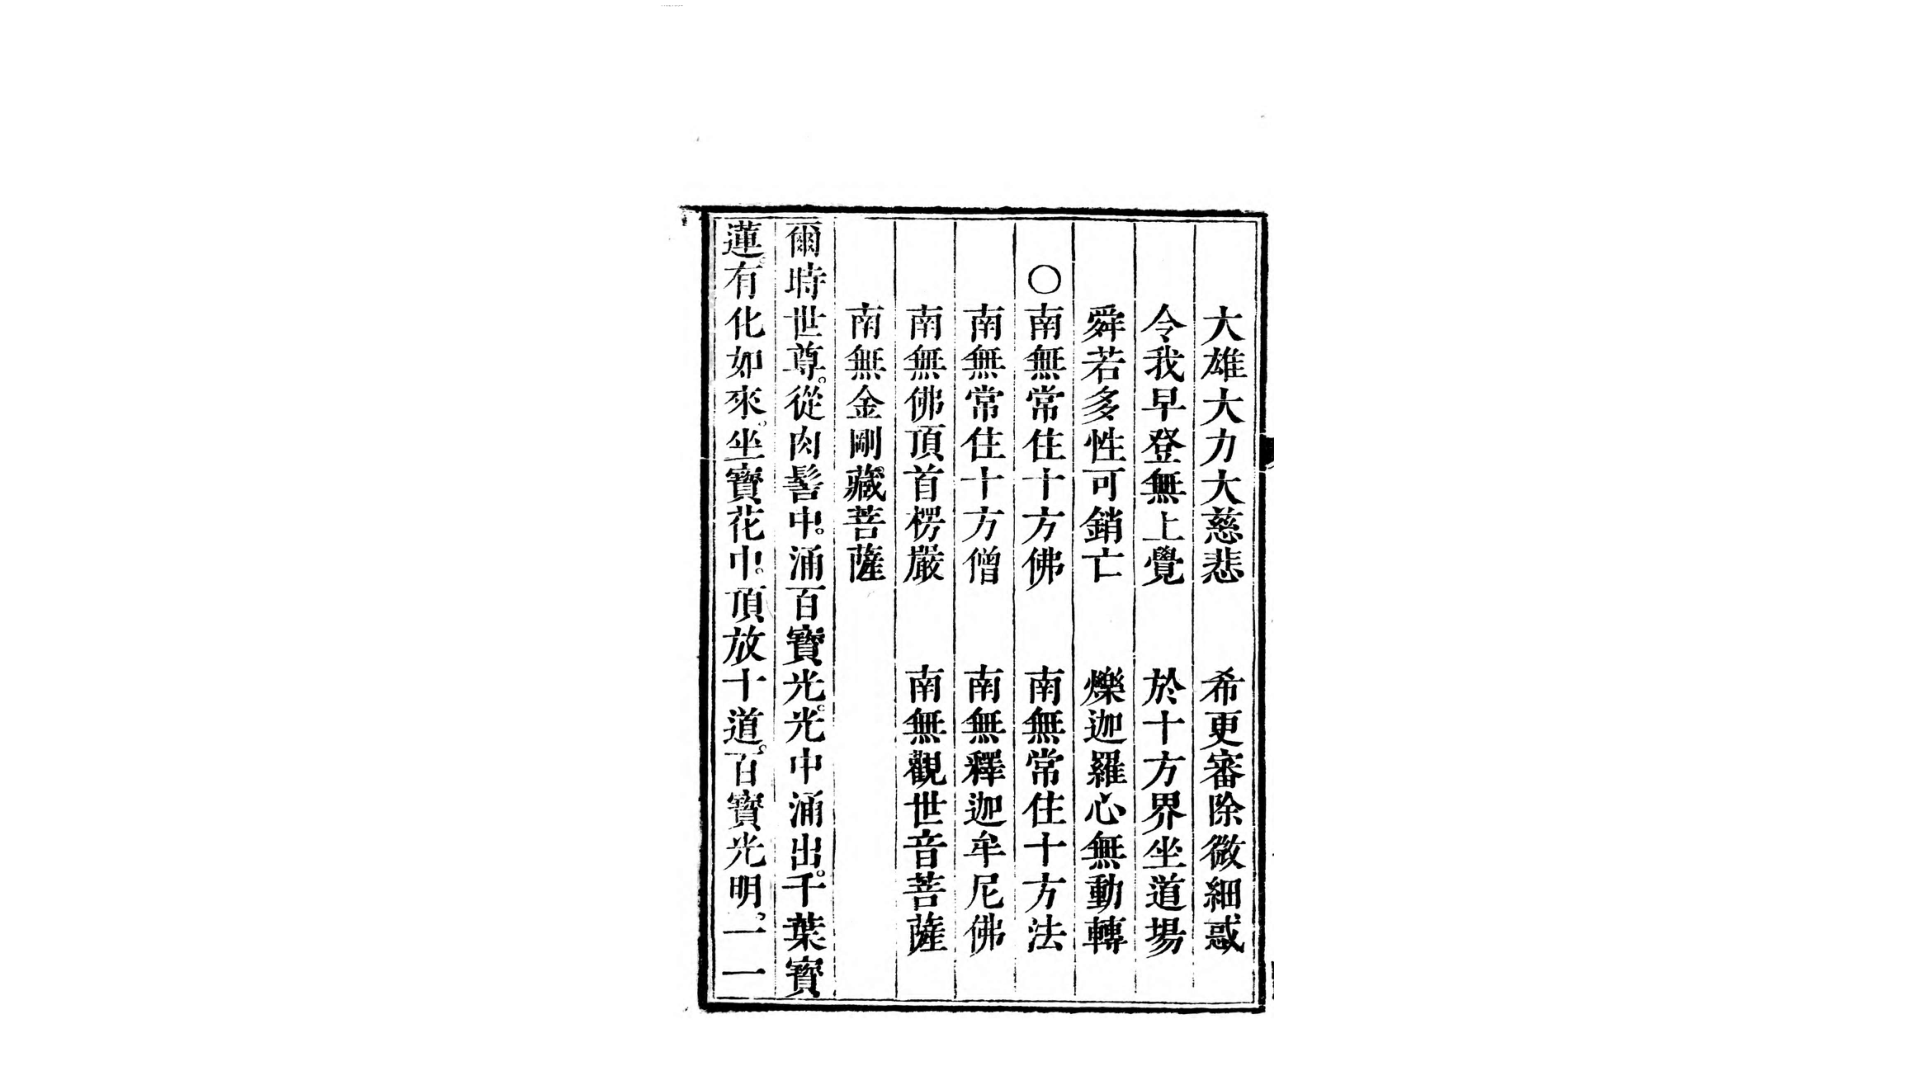 大雄大力大慈悲　希更審除微細惑
令我早登無上覺　於十方界坐道場
舜若多性可銷亡　爍迦羅心無動轉
○南無常住十方佛　南無常住十方法
南無常住十方僧　南無釋迦牟尼佛
南無佛頂首楞嚴　南無觀世音菩薩
南無金剛藏菩薩
爾時世尊。從肉髻中。涌百寶光。光中涌出。千葉寶
蓮。有化如來。坐寶花中。頂放十道。百寶光明。一一